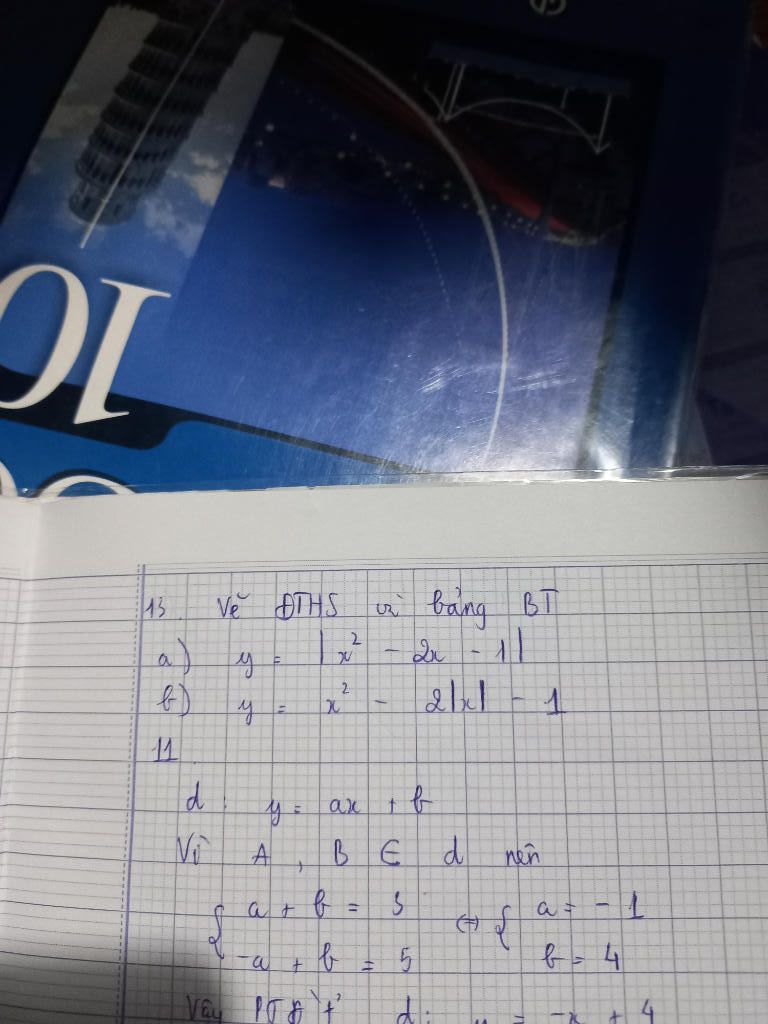 10
13. Vẽ ĐTHS và bảng BT
a) y = |x² - 2x - 1|
b) y = x² - 2|x| - 1
11
d: y = ax + b
Vì A, B ∈ d nên
{ a + b = 3 <=> { a = -1
-a + b = 5 b = 4
Vậy d: y = -x + 4